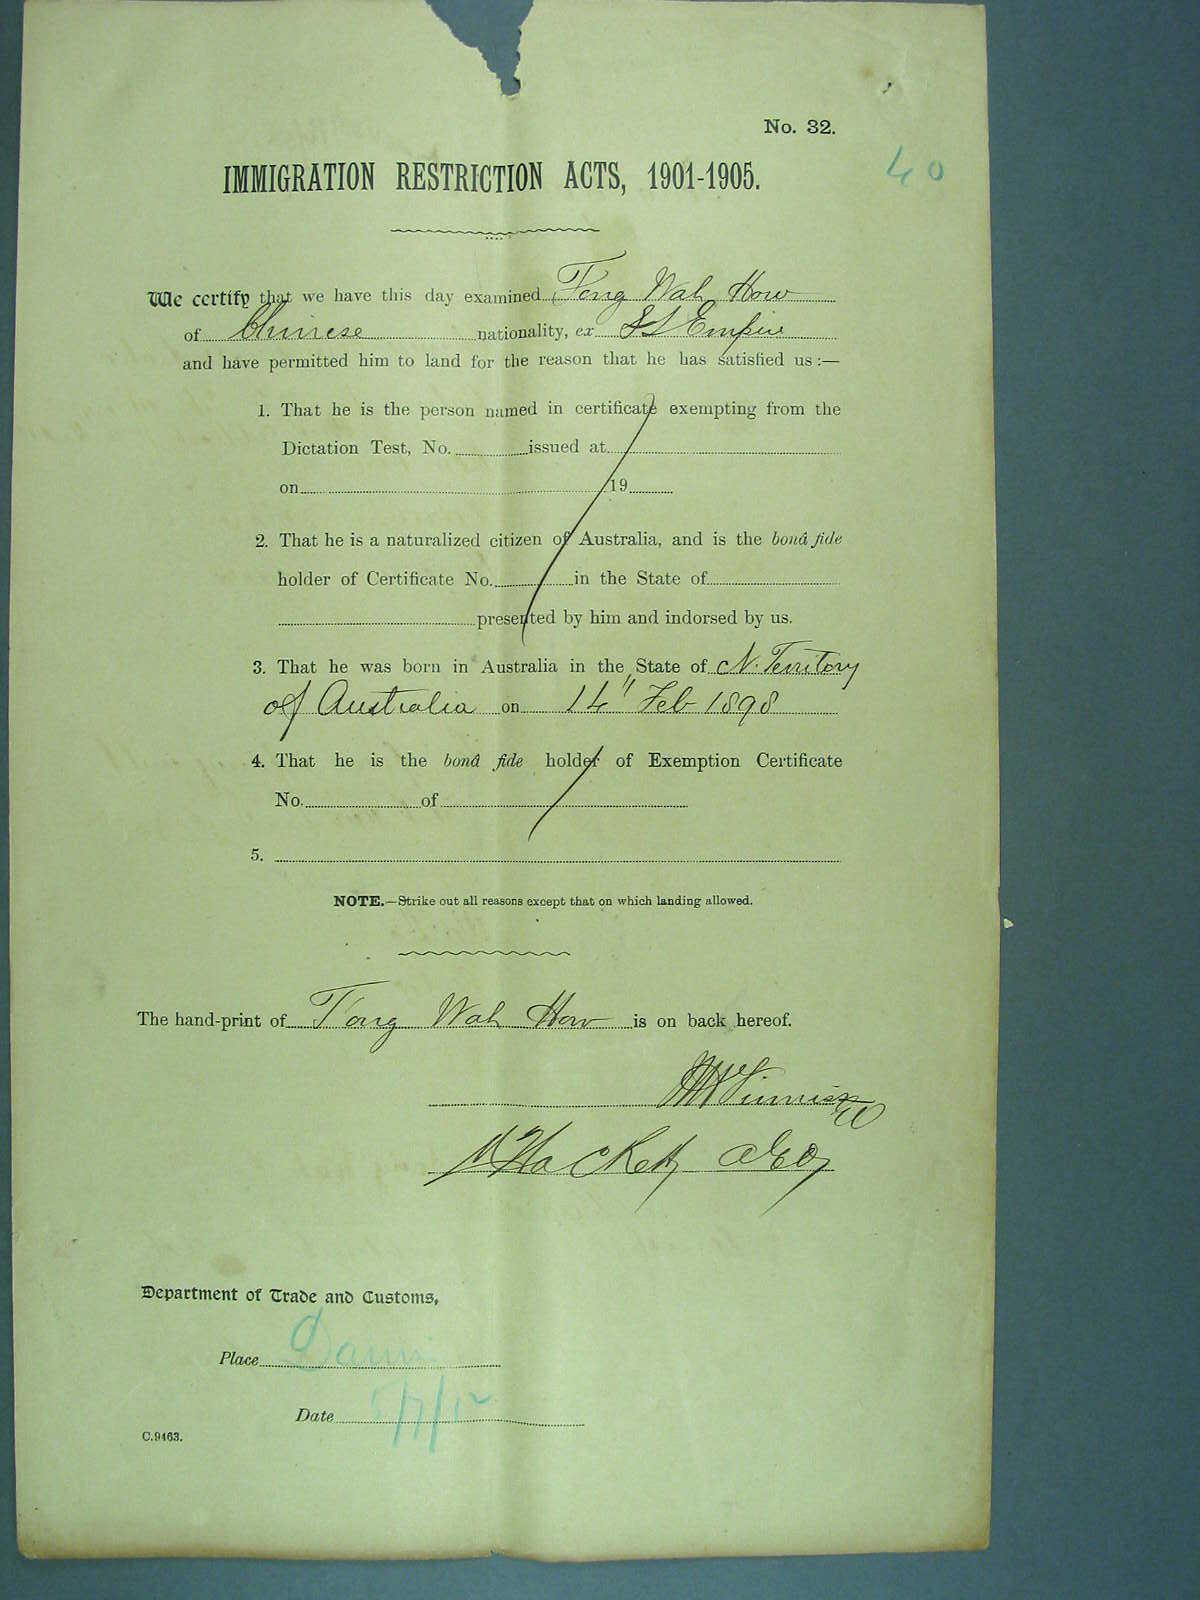 No. 32.
40
IMMIGRATION RESTRICTION ACTS, 1901-1905.
We certify that we have this day examined Tong Wah How
of Chinese nationality, ex SS Empire
and have permitted him to land for the reason that he has satisfied us:—
1. That he is the person named in certificate exempting from the
Dictation Test, No. issued at
on 19
2. That he is a naturalized citizen of Australia, and is the bonâ fide
holder of Certificate No. in the State of
presented by him and indorsed by us.
3. That he was born in Australia in the State of N. Territory
of Australia on 14" Feb 1898
4. That he is the bonâ fide holder of Exemption Certificate
No. of
5.
NOTE.—Strike out all reasons except that on which landing allowed.
The hand-print of Tong Wah How is on back hereof.
Hackett
Department of Trade and Customs,
Place Darwin
Date 5/7/12
C.9463.